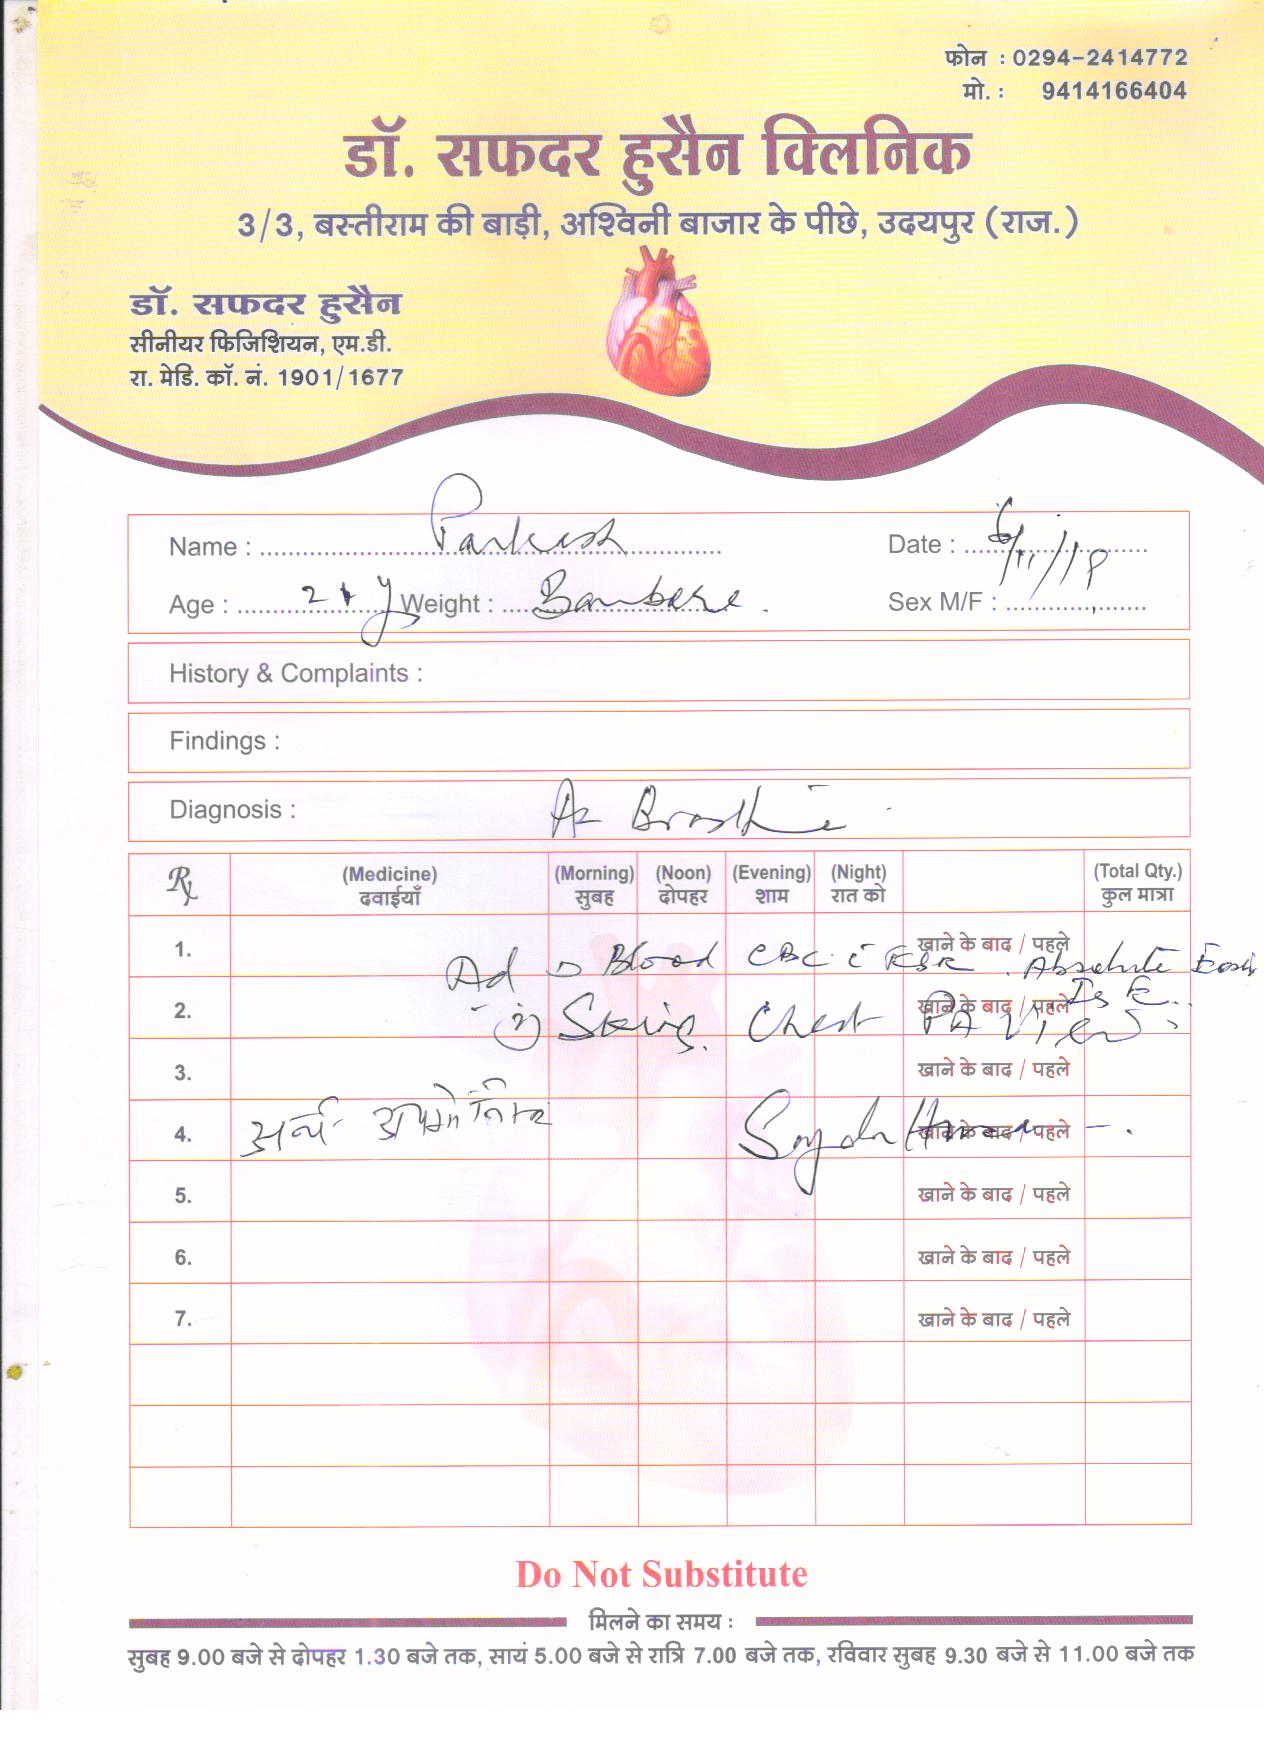 फोन : 0294-2414772
मो. : 9414166404
डॉ. सफदर हुसैन क्लिनिक
3/3, बस्तीराम की बाड़ी, अश्विनी बाजार के पीछे, उदयपुर (राज.)
डॉ. सफदर हुसैन
सीनीयर फिजिशियन, एम.डी.
रा. मेडि. कॉ. नं. 1901/1677
Name : Parkash Date : 6/11/18
Age : Weight : Sex M/F :
History & Complaints :
Findings :
Diagnosis :
Rx (Medicine) (Morning) (Noon) (Evening) (Night) (Total Qty.)
दवाईयाँ सुबह दोपहर शाम रात को कुल मात्रा
1. खाने के बाद / पहले
Ad Blood CBC ESR Absolute
2. खाने के बाद / पहले
(2) Chest PA View
3. खाने के बाद / पहले
4. खाने के बाद / पहले
5. खाने के बाद / पहले
6. खाने के बाद / पहले
7. खाने के बाद / पहले
Do Not Substitute
मिलने का समय :
सुबह 9.00 बजे से दोपहर 1.30 बजे तक, सायं 5.00 बजे से रात्रि 7.00 बजे तक, रविवार सुबह 9.30 बजे से 11.00 बजे तक